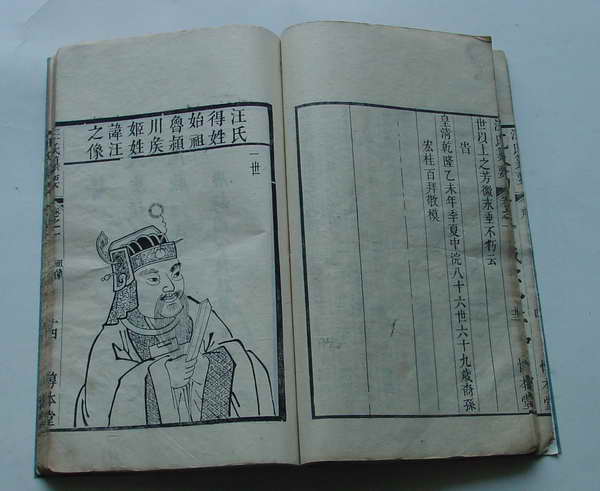 世以上之芳徽永垂不朽云
旹
皇清乾隆乙未年季夏中浣八十六世六十九歲裔孫
宏桂百拜敬模
汪氏
得姓
始祖
魯潁
川矦
姬姓
諱汪
之像
一世
十四
本堂